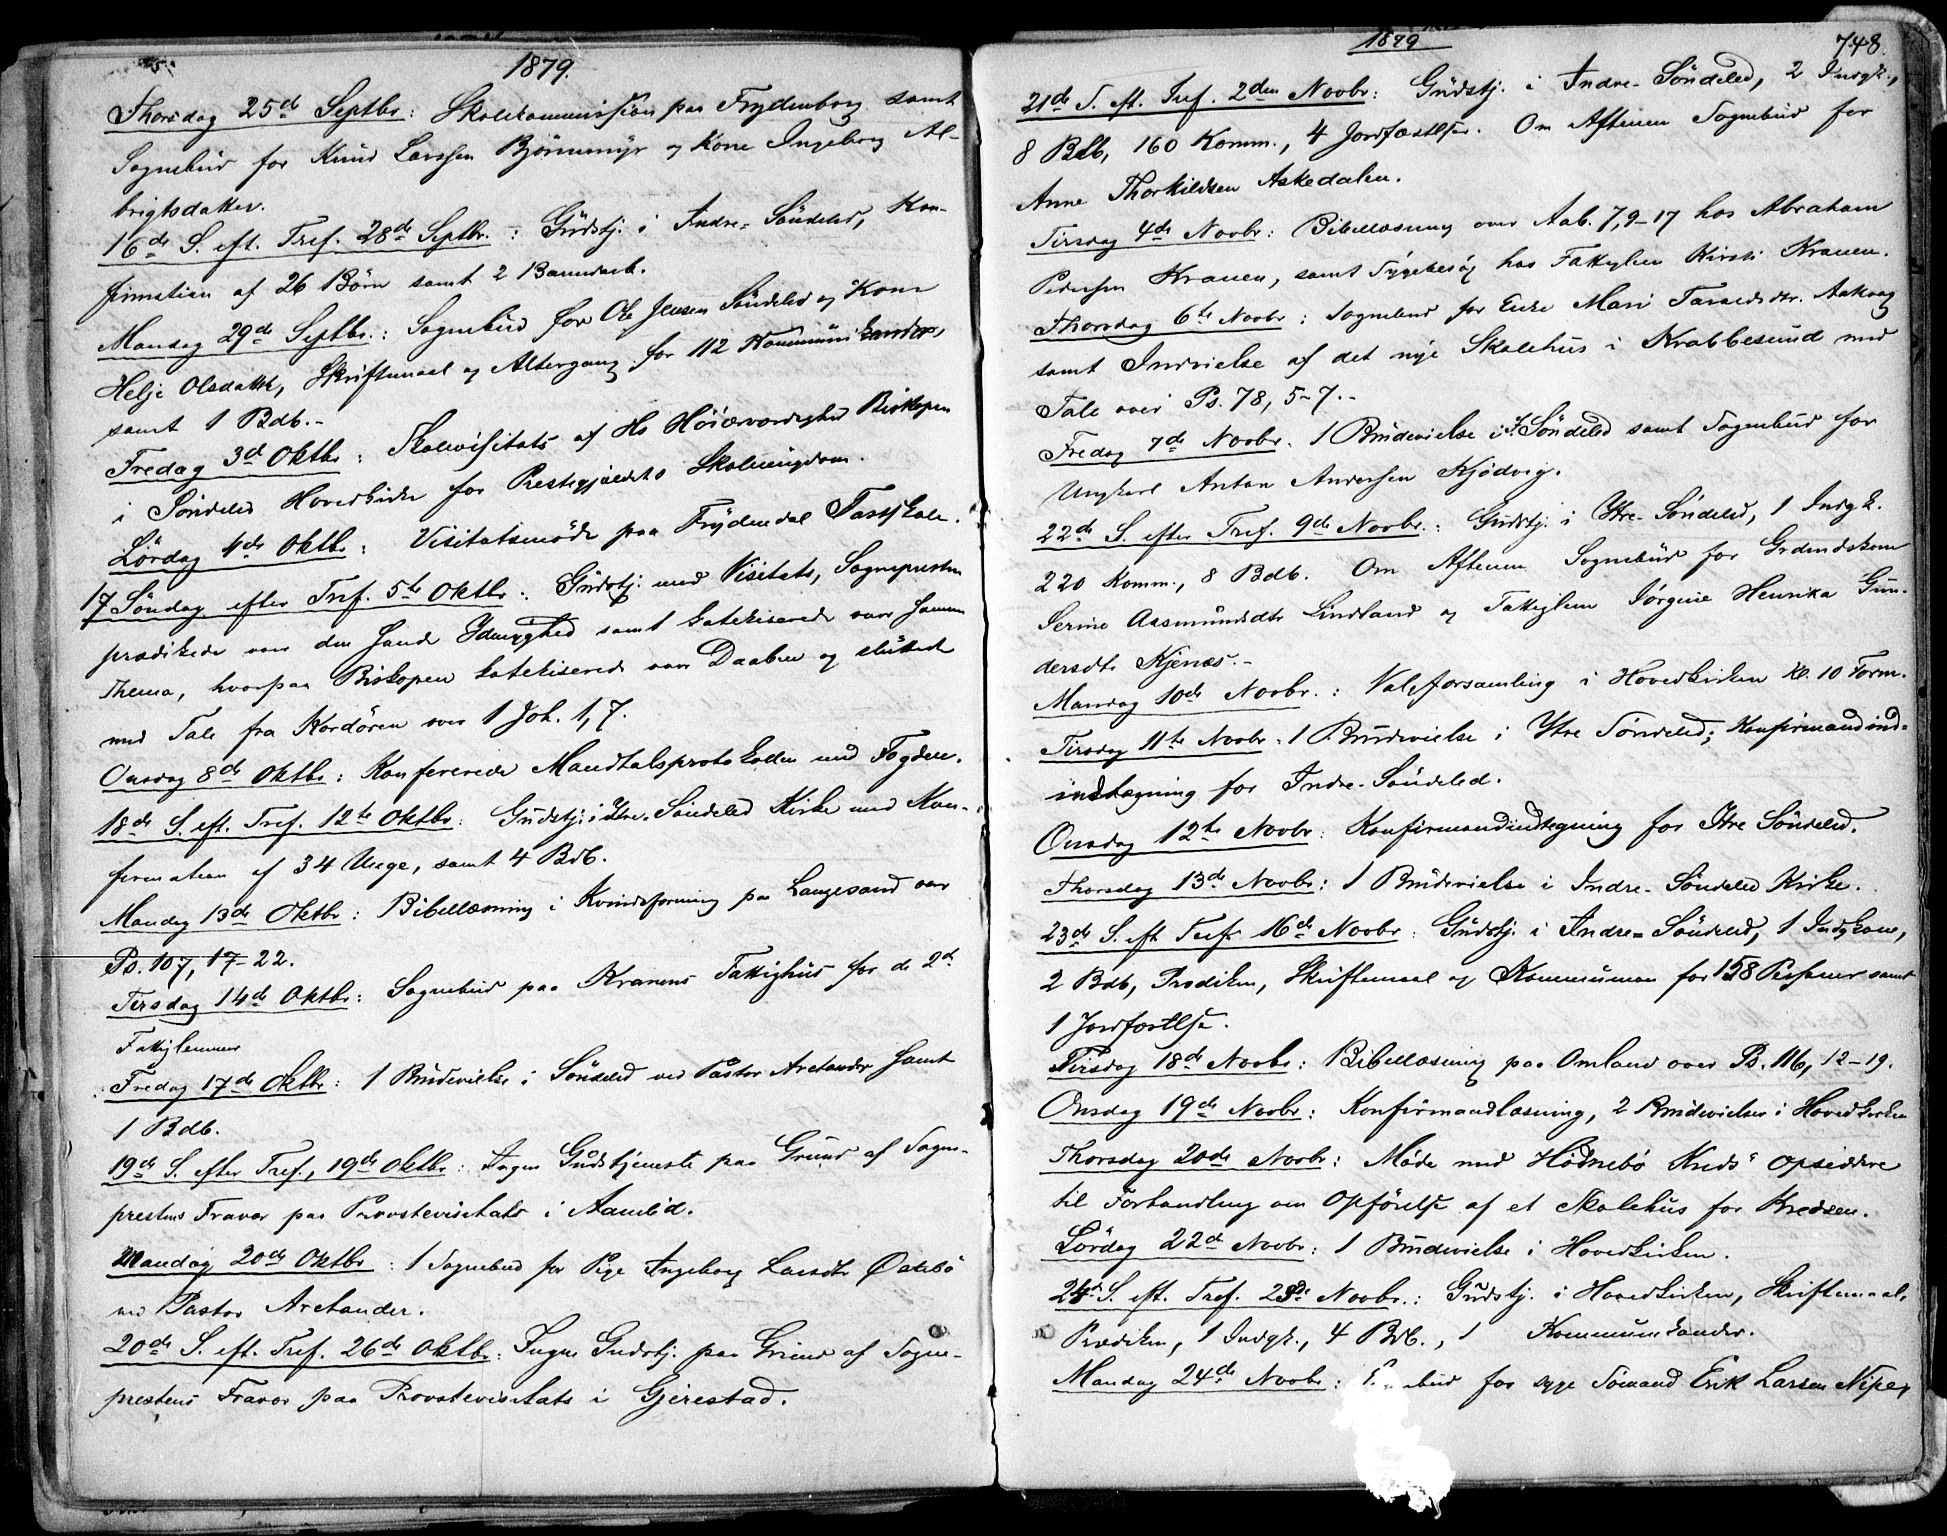 1879.
Thorsdag 25de Septbr: Skolekommission paa Frydenborg samt
Sognebud for Knud Larssen Bjørnemyr og Kone Ingeborg Al-
brigtsdatter.
16de S. eft. Tref. 28de Septbr.: Gudstj. i Indre-Søndeled, Kon-
firmation af 26 Børn samt 2 Barnedaab.
Mandag 29de Septbr.: Sognebud for Ole Jensen Søndeled og Kone
Helje Olsdatter, Skriftemaal og Altergang for 112 Kommunikanter,
samt 1 Bdb.-
Fredag 3de Oktbr: Skolevisitats af Hs Høiærværdighed Biskopen
i Søndeled Hovedkirke for Prestegjældets Skoleungdom.
Lørdag 4de Oktbr: Visitatsmøde paa Frydendal Fastskole.
17 Søndag efter Tref. 5te Oktbr: Gudstj. med Visitats, Sognepresten
prædikede over den sande Ydmyghed samt katekiserede over samme
Thema, hvorpaa Biskopen katekiserede over Daaben og sluttede
med Tale fra Kordøren over 1 Joh. 1,7.
Onsdag 8de Oktbr: Konfererede Mandtalsprotokollen med Fogden.
18de S. eft. Tref. 12te Oktbr: Gudstj. i Ytre-Søndeled Kirke med Kon-
firmation af 34 Unge, samt 4 Bdb.
Mandag 13de Oktbr: Bibellæsning i Kvindeforening paa Langesand over
Ps. 107, 17-22.
Tirsdag 14de Oktbr: Sognebud paa Kranens Fattighus for de 2de
Fattiglemmer
Fredag 17de Oktbr: 1 Brudevielse i Søndeled ved Pastor Arctander samt
1 Bdb.
19de S. efter Tref., 19de Oktbr: Ingen Gudstjeneste paa Grund af Sogne-
prestens Fravær paa Provstevisitats i Aamlid.
Mandag 20de Oktbr: 1 Sognebud for Pige Ingeborg Larsdtr Øxebø
ved Pastor Arctander.
20de S. eft. Tref. 26de Oktbr: Ingen Gudstj. paa Grund af Sogne-
prestens Fravær paa Provstevisitats i Gjerestad.
1879 748.
21de S. eft. Tref. 2den Novbr: Gudstj. i Indre-Søndeled, 2 Indgk.,
8 Bdb, 160 Komm., 4 Jordfæstelser. Om Aftenen Sognebud for
Anne Thorkildsen Askedalen.
Tirsdag 4de Novbr: Bibellæsning over Aab. 7,9-17 hos Abraham
Pedersen Kranen, samt Sygebesøg hos Fattiglem Kirsti Kranen.
Thorsdag 6te Novbr: Sognebud for Enke Mari Taraldsdtr. Aakvaag
samt Indvielse af det nye Skolehus i Krabbesund med
Tale over Ps. 78, 5-7.-
Fredag 7de Novbr. 1 Brudevielse i I. Søndeled samt Sognebud for
Ungkarl Anton Andersen Kjødvig.
22de S. efter Tref. 9de Novbr.: Gudstj. i Ytre-Søndeled, 1 Indgk.
220 Komm., 8 Bdb. Om Aftenen Sognebud for Grdmdskone
Serine Aasmundsdtr Lindland og Fattiglem Jørgine Henrika Gun-
dersdtr Kjenæs.-
Mandag 10de Novbr.: Valgforsamling i Hovedkirken Kl. 10 Form.
Tirsdag 11te Novbr. 1 Brudevielse i Ytre Søndeled; Konfirmandind-
indtegning for Indre-Søndeled.
Onsdag 12te Novbr: Konfirmandindtegning for Ytre Søndeled.
Thorsdag 13de Novbr: 1 Brudevielse i Indre-Søndeled Kirke.
23de S. eft Tref. 16de Novbr: Gudstj. i Indre-Søndeled, 1 Indgkone,
2 Bdb, Prædiken, Skriftemaal og Kommunion for 158 Personer samt
1 Jordfæstelse.
Tirsdag 18de Novbr: Bibellæsning paa Omland over Ps. 116, 12-19.
Onsdag 19de Novbr: Konfirmandlæsning, 2 Brudevielser i Hovedkirken
Thorsdag 20de Novbr: Møde med Hødnebø Kreds' Opsiddere
til Forhandling om Opførelse af et Skolehus for Kredsen.
Lørdag 22de Novbr: 1 Brudevielse i Hovedkirken.
24de S. eft. Tref. 23de Novbr.: Gudstj. i Hovedkirken, Skriftemaal,
Prædiken, 1 Indgk., 4 Bdb., 1 Kommunikander.
Mandag 24de Novbr: for syge Sømand Erik Larsen Nipe,